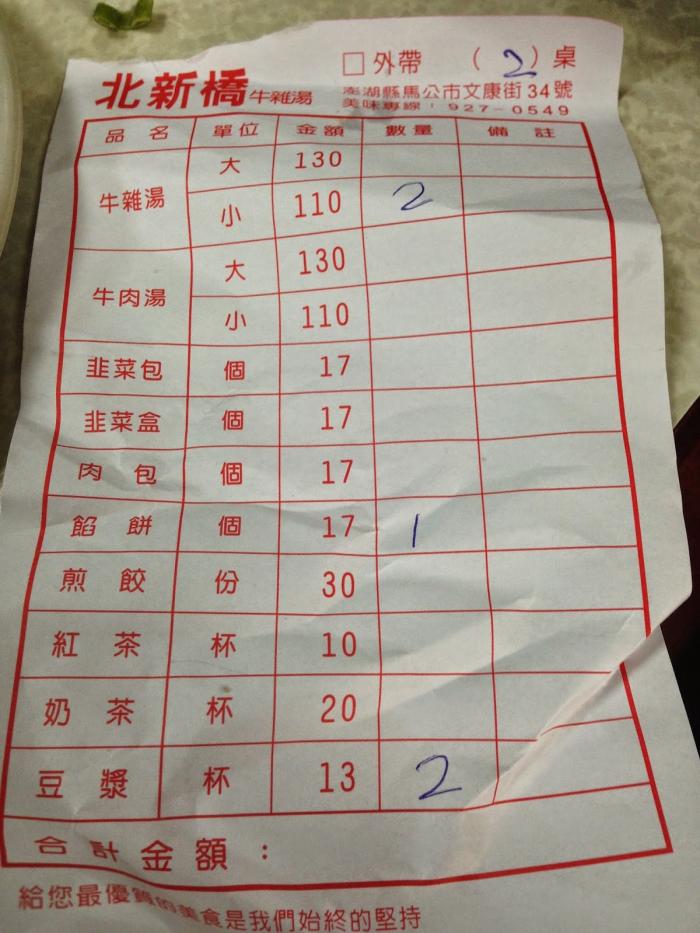 □外帶 (2)桌
北新橋牛雜湯
澎湖縣馬公市文康街34號
美味專線：927-0549
品名 單位 金額 數量 備註
牛雜湯 大 130
小 110 2
牛肉湯 大 130
小 110
韭菜包 個 17
韭菜盒 個 17
肉包 個 17
餡餅 個 17 1
煎餃 份 30
紅茶 杯 10
奶茶 杯 20
豆漿 杯 13 2
合計金額：
給您最優質的美食是我們始終的堅持